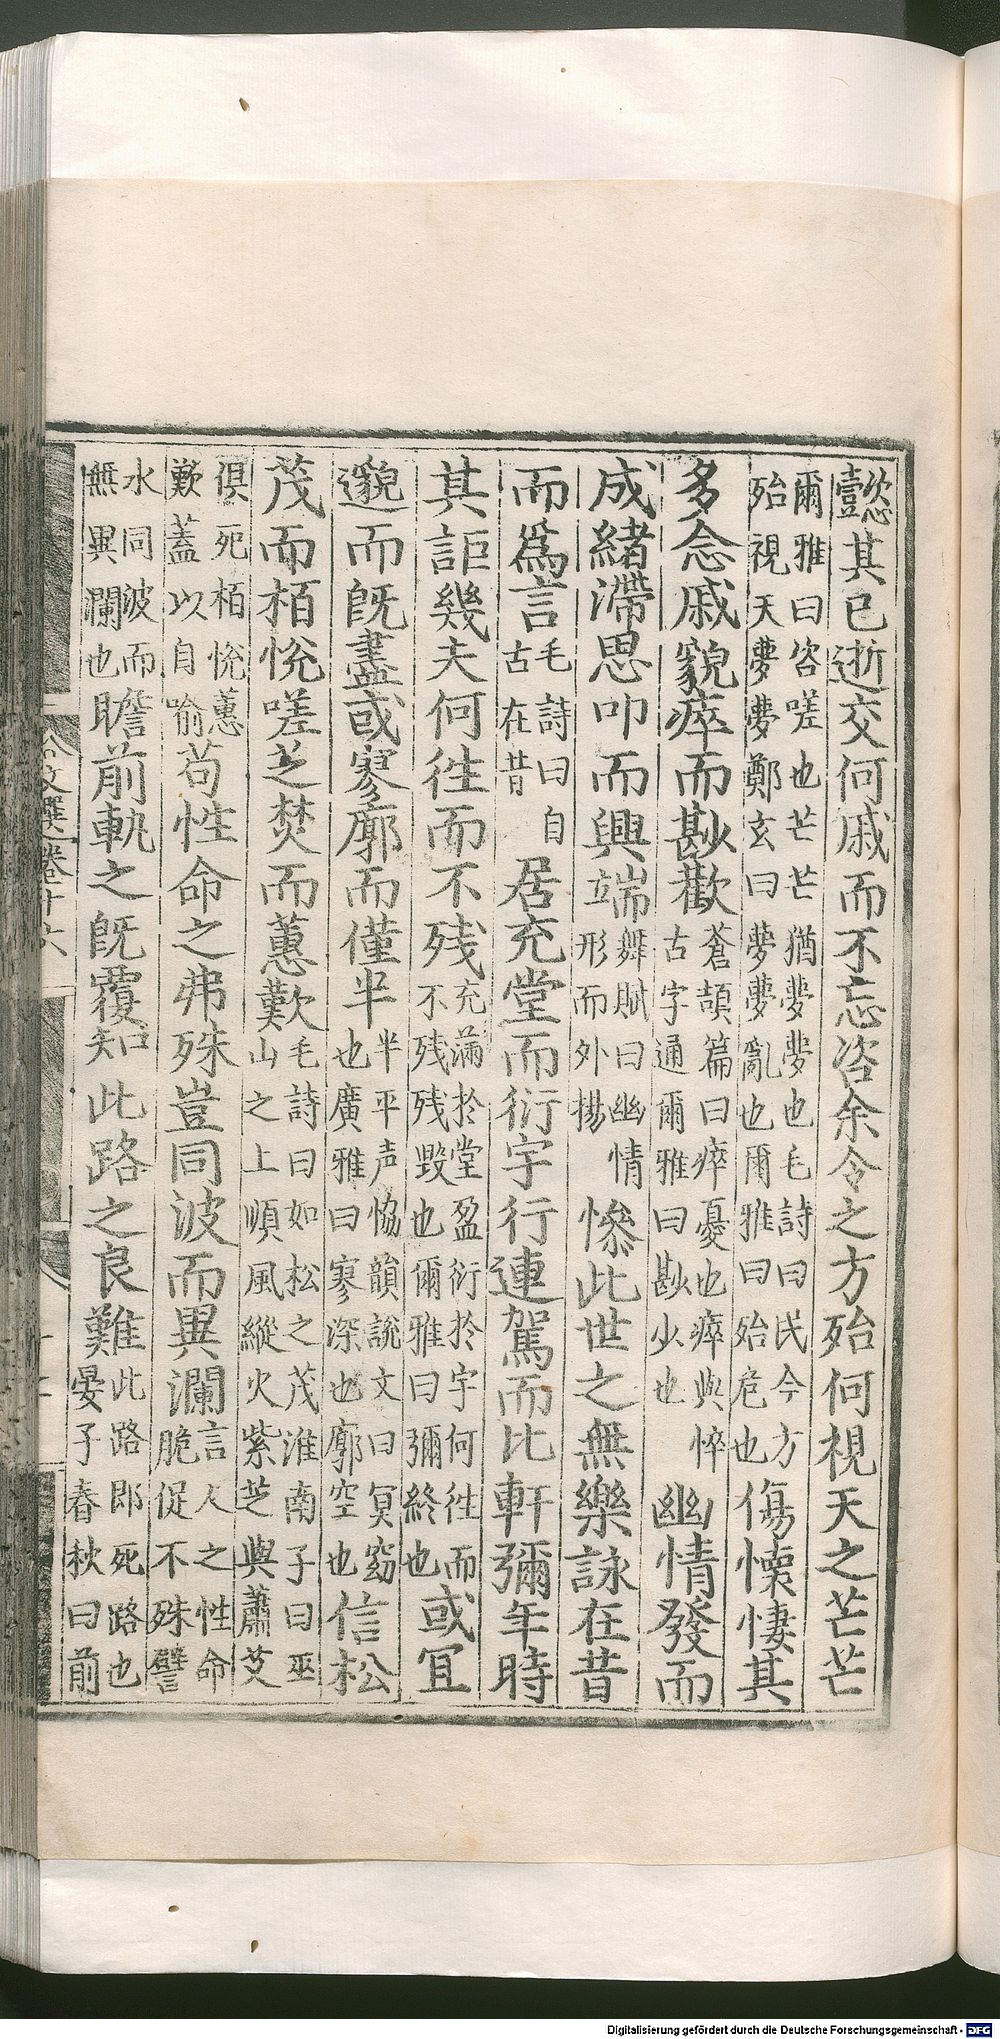 懿其已逝交何戚而不忘咨余今之方殆何視天之芒芒
爾雅曰咨嗟也芒芒猶夢夢也毛詩曰民今方
殆視天夢夢鄭玄曰夢夢亂也爾雅曰殆危也
傷懷悽其
多念戚貌瘁而尠歡
蒼頡篇曰瘁憂也瘁與悴
古字通爾雅曰尠少也
幽情發而
成緒滯思叩而興端
舞賦曰幽情
形而外揚
慘此世之無樂詠在昔
而爲言
毛詩曰自
古在昔
居充堂而衍宇行連駕而比軒彌年時
其詎幾夫何往而不残
充滿於堂盈衍於宇何往而
不残残毀也爾雅曰彌終也
或冥
邈而旣盡或寥廓而僅半
半平声恊韻說文曰冥窈
也廣雅曰寥深也廓空也
信松
茂而栢悅嗟芝焚而蕙歎
毛詩曰如松之茂淮南子曰巫
山之上順風縱火紫芝與蕭艾
俱死栢悅蕙
歎蓋以自喻
苟性命之弗殊豈同波而異瀾
言人之性命
脆促不殊譬
水同波而
無異瀾也
瞻前軌之旣覆知此路之良難
此路即死路也
晏子春秋曰前
文選卷十六
Digitalisierung gefördert durch die Deutsche Forschungsgemeinschaft - DFG